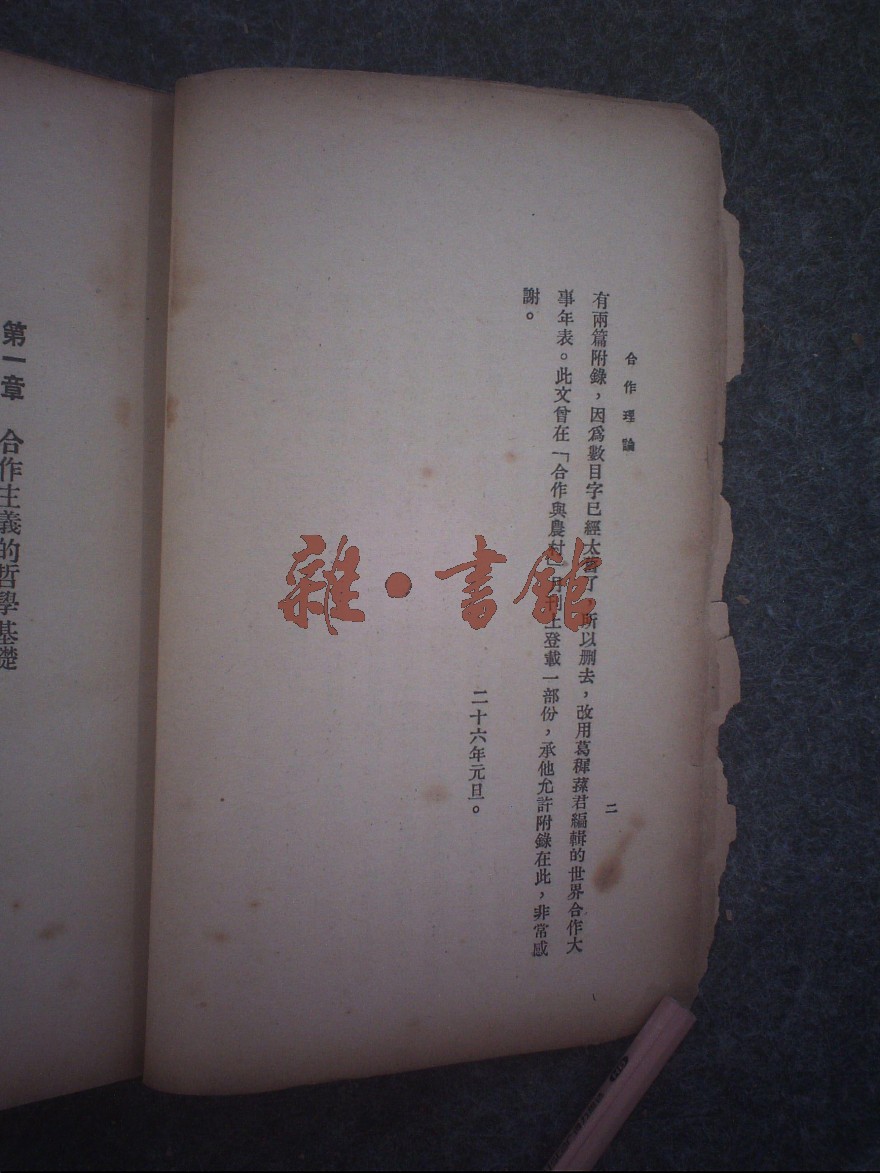 合作理論
二
有兩篇附錄，因為數目字已經太舊了，所以刪去，改用葛穉蓀君編輯的世界合作大
事年表。此文曾在「合作與農村」月刊上登載一部份，承他允許附錄在此，非常感
謝。
二十六年元旦。
第一章　合作主義的哲學基礎
雜·書館